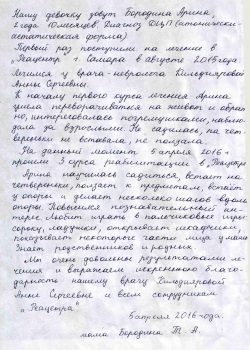 Нашу девочку зовут Бородина Арина,
2 года 10 месяцев. Диагноз ДЦП (атонически-
астатическая форма)
Первый раз поступили на лечение в
"Реацентр" г. Самара в августе 2015 года.
Лечимся у врача-невролога Бильдияровой
Анны Сергеевны.
К началу первого курса лечения Арина
умела переворачиваться на живот и обрат
но, интересовалась погремушками, наблю-
дала за взрослыми. Не садилась, на чет
вереньки не вставала, не ползала.
На данный момент, в апреле 2016 г
прошли 3 курса реабилитации в "Реацентр"
Арина научилась садиться, встаёт на
четвереньки, ползает к предметам, встаёт
у опоры и делает несколько шагов вдоль
опоры. Повысился познавательный ин-
терес. Любит играть в пальчиковые игры
сороку, ладушки, открывает шкафчики,
показывает некоторые части лица у мамы
Знает родственников и родных
Мы очень довольны результатами ле-
чения и выражаем искреннюю благо-
дарность нашему врачу Бильдияровой
Анне Сергеевне и всем сотрудникам
"Реацентра"
5 апреля 2016 года.
мама Бородина Т. А.